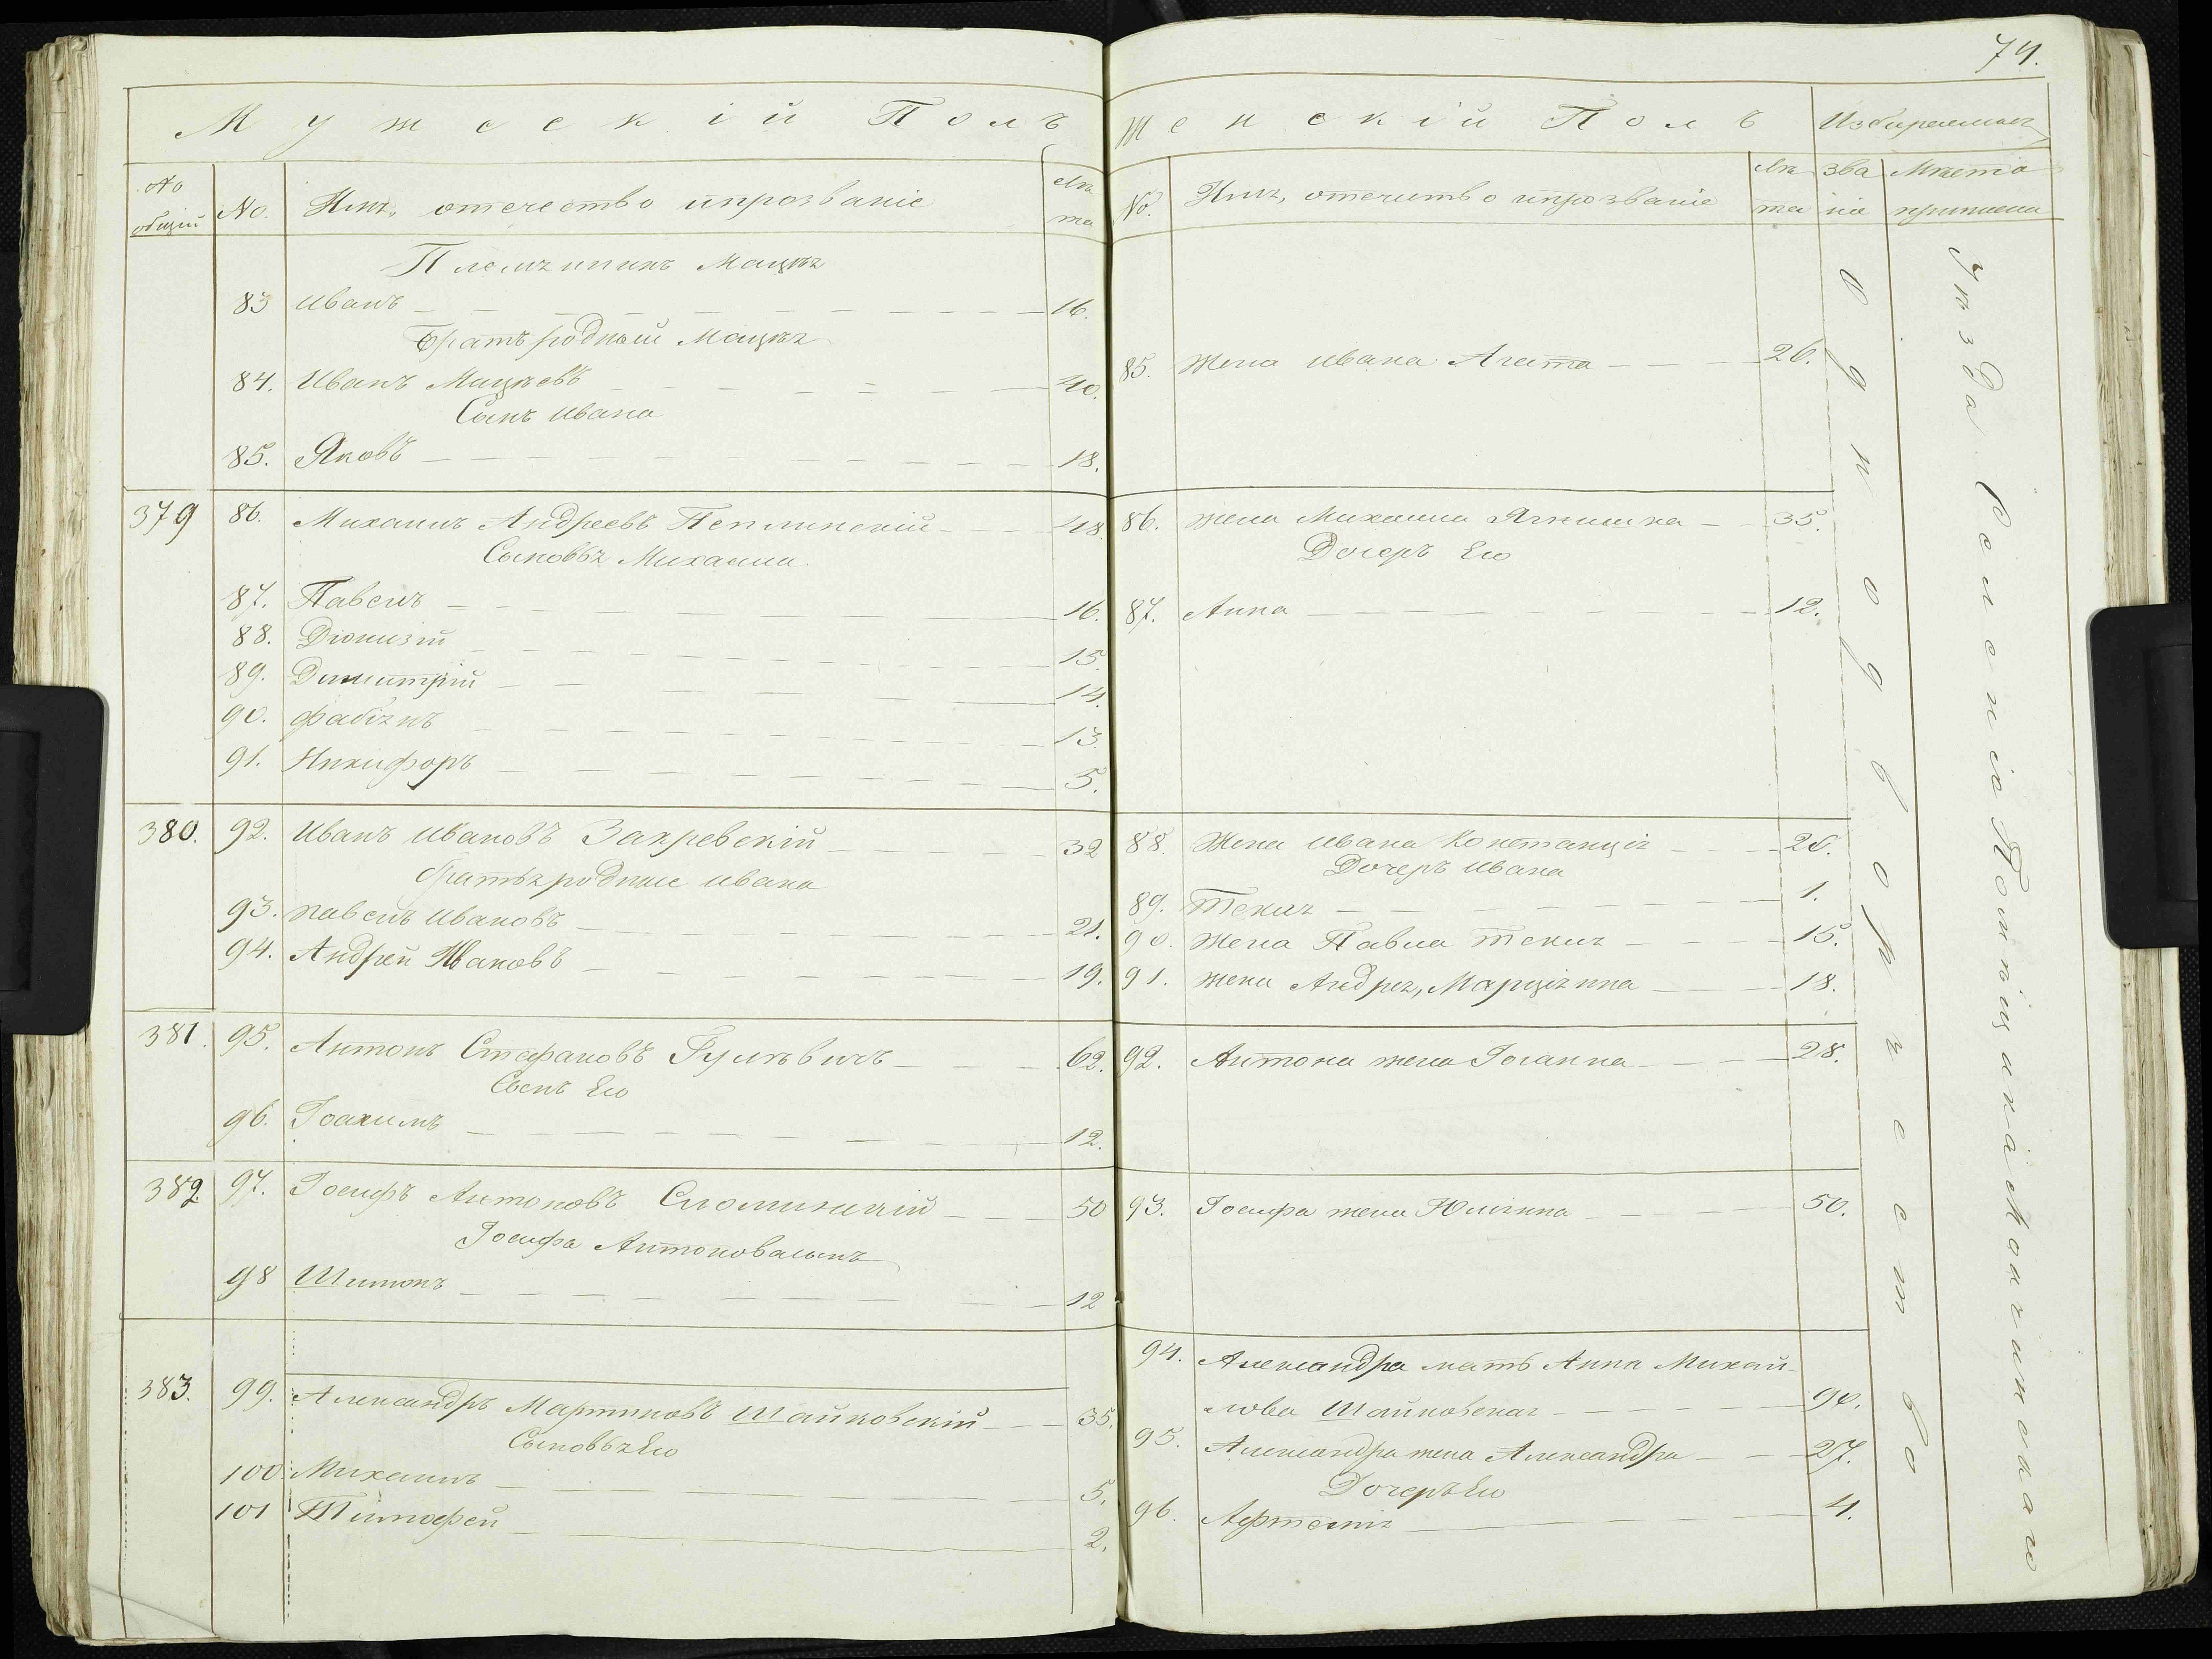 74.
Мужескій Полъ
№ общій
№.
Имя, отечество и прозваніе
Лѣта
Племянникъ Мацѣя
83 Иванъ 16.
Братъ родный Мацѣя
84. Иванъ Мацѣевъ 40.
Сынъ Ивана
85. Яковъ 18.
379 86. Михаилъ Андреевъ Пеплинскій 48
Сыновья Михаила
87. Павелъ 16.
88. Діонизій 15.
89. Димитрій 14.
90. Фабіянъ 13.
91. Никифоръ 5.
380. 92. Иванъ Ивановъ Закревскій 32
Братья родные Ивана
93. Павелъ Ивановъ 21.
94. Андрей Ивановъ 19.
381. 95. Антонъ Стефановъ 62.
Сынъ Его
96. Іоахимъ 12.
382. 97. Іосифъ Антоновъ 50
Іосифа Антонова сынъ
98 Шимонъ 12
383. 99. Александръ Мартиновъ Шайковскій 35.
Сыновья Его
100. Михаилъ 5.
101 Тимофей 2.
Женскій Полъ
Избираемыя
№.
Имя, отечество и прозваніе
Лѣта
званіе
Мѣста приписки
85. Жена Ивана Агата 26.
86. Жена Михаила Ягнишка 35.
Дочерь Его
87. Анна 12.
88. Жена Ивана Констанція 20.
Дочерь Ивана
89. Текля 1.
90. Жена Павла Текля 15.
91. Жена Андрея, Марціянна 18.
92. Антона жена Іоганна 28.
93. Іосифа жена Юліянна 50.
94. Александра мать Анна Михай-
лова Шайковская 90.
95. Александра жена Александра 27.
Дочерь Его
96. Афтемія 4.
Однодворческое
Уѣзда Селенія